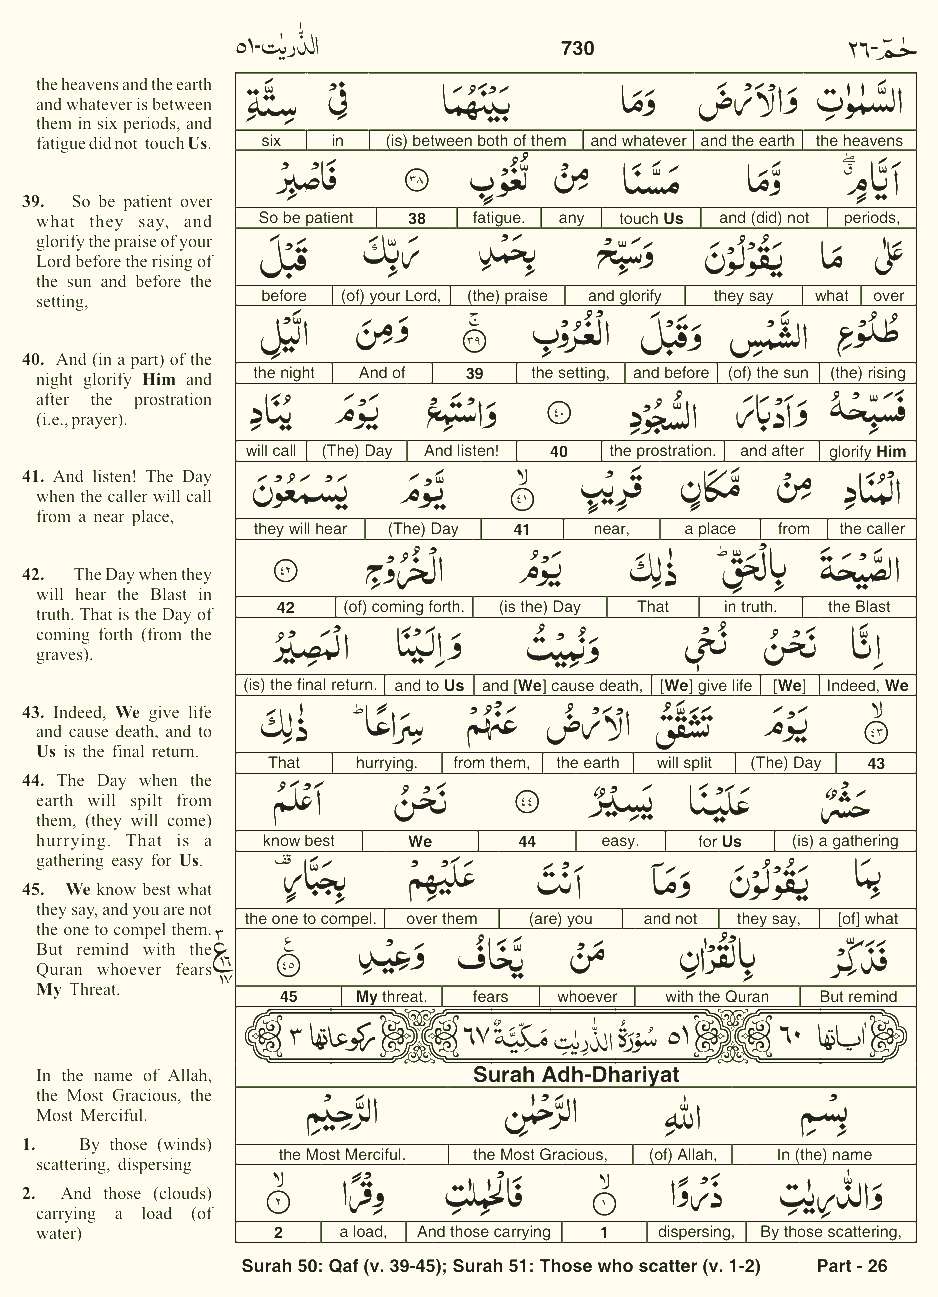 حٰمٓ-٢٦ 730 الذّٰريٰت-٥١
the heavens and the earth
and whatever is between
them in six periods, and
fatigue did not touch Us.
39. So be patient over
what they say, and
glorify the praise of your
Lord before the rising of
the sun and before the
setting,
40. And (in a part) of the
night glorify Him and
after the prostration
(i.e., prayer).
41. And listen! The Day
when the caller will call
from a near place,
42. The Day when they
will hear the Blast in
truth. That is the Day of
coming forth (from the
graves).
43. Indeed, We give life
and cause death, and to
Us is the final return.
44. The Day when the
earth will spilt from
them, (they will come)
hurrying. That is a
gathering easy for Us.
45. We know best what
they say, and you are not
the one to compel them.
But remind with the
Quran whoever fears
My Threat.
٣
ع
١٦
١٧
In the name of Allah,
the Most Gracious, the
Most Merciful.
1. By those (winds)
scattering, dispersing
2. And those (clouds)
carrying a load (of
water)
السَّمٰوٰتِ وَالْاَرْضَ وَمَا بَيْنَهُمَا فِيْ سِتَّةِ
the heavens and the earth and whatever (is) between both of them in six
اَيَّامٍ ۖ وَّمَا مَسَّنَا مِنْ لُّغُوْبٍ ٣٨ فَاصْبِرْ
periods, and (did) not touch Us any fatigue. 38 So be patient
عَلٰى مَا يَقُوْلُوْنَ وَسَبِّحْ بِحَمْدِ رَبِّكَ قَبْلَ
over what they say and glorify (the) praise (of) your Lord, before
طُلُوْعِ الشَّمْسِ وَقَبْلَ الْغُرُوْبِ ۚ ٣٩ وَمِنَ الَّيْلِ
(the) rising (of) the sun and before the setting, 39 And of the night
فَسَبِّحْهُ وَاَدْبَارَ السُّجُوْدِ ٤٠ وَاسْتَمِعْ يَوْمَ يُنَادِ
glorify Him and after the prostration. 40 And listen! (The) Day will call
الْمُنَادِ مِنْ مَّكَانٍ قَرِيْبٍ ۙ ٤١ يَّوْمَ يَسْمَعُوْنَ
the caller from a place near, 41 (The) Day they will hear
الصَّيْحَةَ بِالْحَقِّ ۗ ذٰلِكَ يَوْمُ الْخُرُوْجِ ٤٢
the Blast in truth. That (is the) Day (of) coming forth. 42
اِنَّا نَحْنُ نُحْيٖ وَنُمِيْتُ وَاِلَيْنَا الْمَصِيْرُ
Indeed, We [We] [We] give life and [We] cause death, and to Us (is) the final return.
ۙ ٤٣ يَوْمَ تَشَقَّقُ الْاَرْضُ عَنْهُمْ سِرَاعًا ۗ ذٰلِكَ
43 (The) Day will split the earth from them, hurrying. That
حَشْرٌ عَلَيْنَا يَسِيْرٌ ٤٤ نَحْنُ اَعْلَمُ
(is) a gathering for Us easy. 44 We know best
بِمَا يَقُوْلُوْنَ وَمَآ اَنْتَ عَلَيْهِمْ بِجَبَّارٍ ۗقف
[of] what they say, and not (are) you over them the one to compel.
فَذَكِّرْ بِالْقُرْاٰنِ مَنْ يَّخَافُ وَعِيْدِ ع ٤٥
But remind with the Quran whoever fears My threat. 45
اٰياتها ٦٠ ٥١ سُوْرَةُ الذّٰرِيٰتِ مَكِّيَّةٌ ٦٧ ركوعاتها ٣
Surah Adh-Dhariyat
بِسْمِ اللّٰهِ الرَّحْمٰنِ الرَّحِيْمِ
In (the) name (of) Allah, the Most Gracious, the Most Merciful.
وَالذّٰرِيٰتِ ذَرْوًا ۙ ١ فَالْحٰمِلٰتِ وِقْرًا ۙ ٢
By those scattering, dispersing, 1 And those carrying a load, 2
Surah 50: Qaf (v. 39-45); Surah 51: Those who scatter (v. 1-2) Part - 26